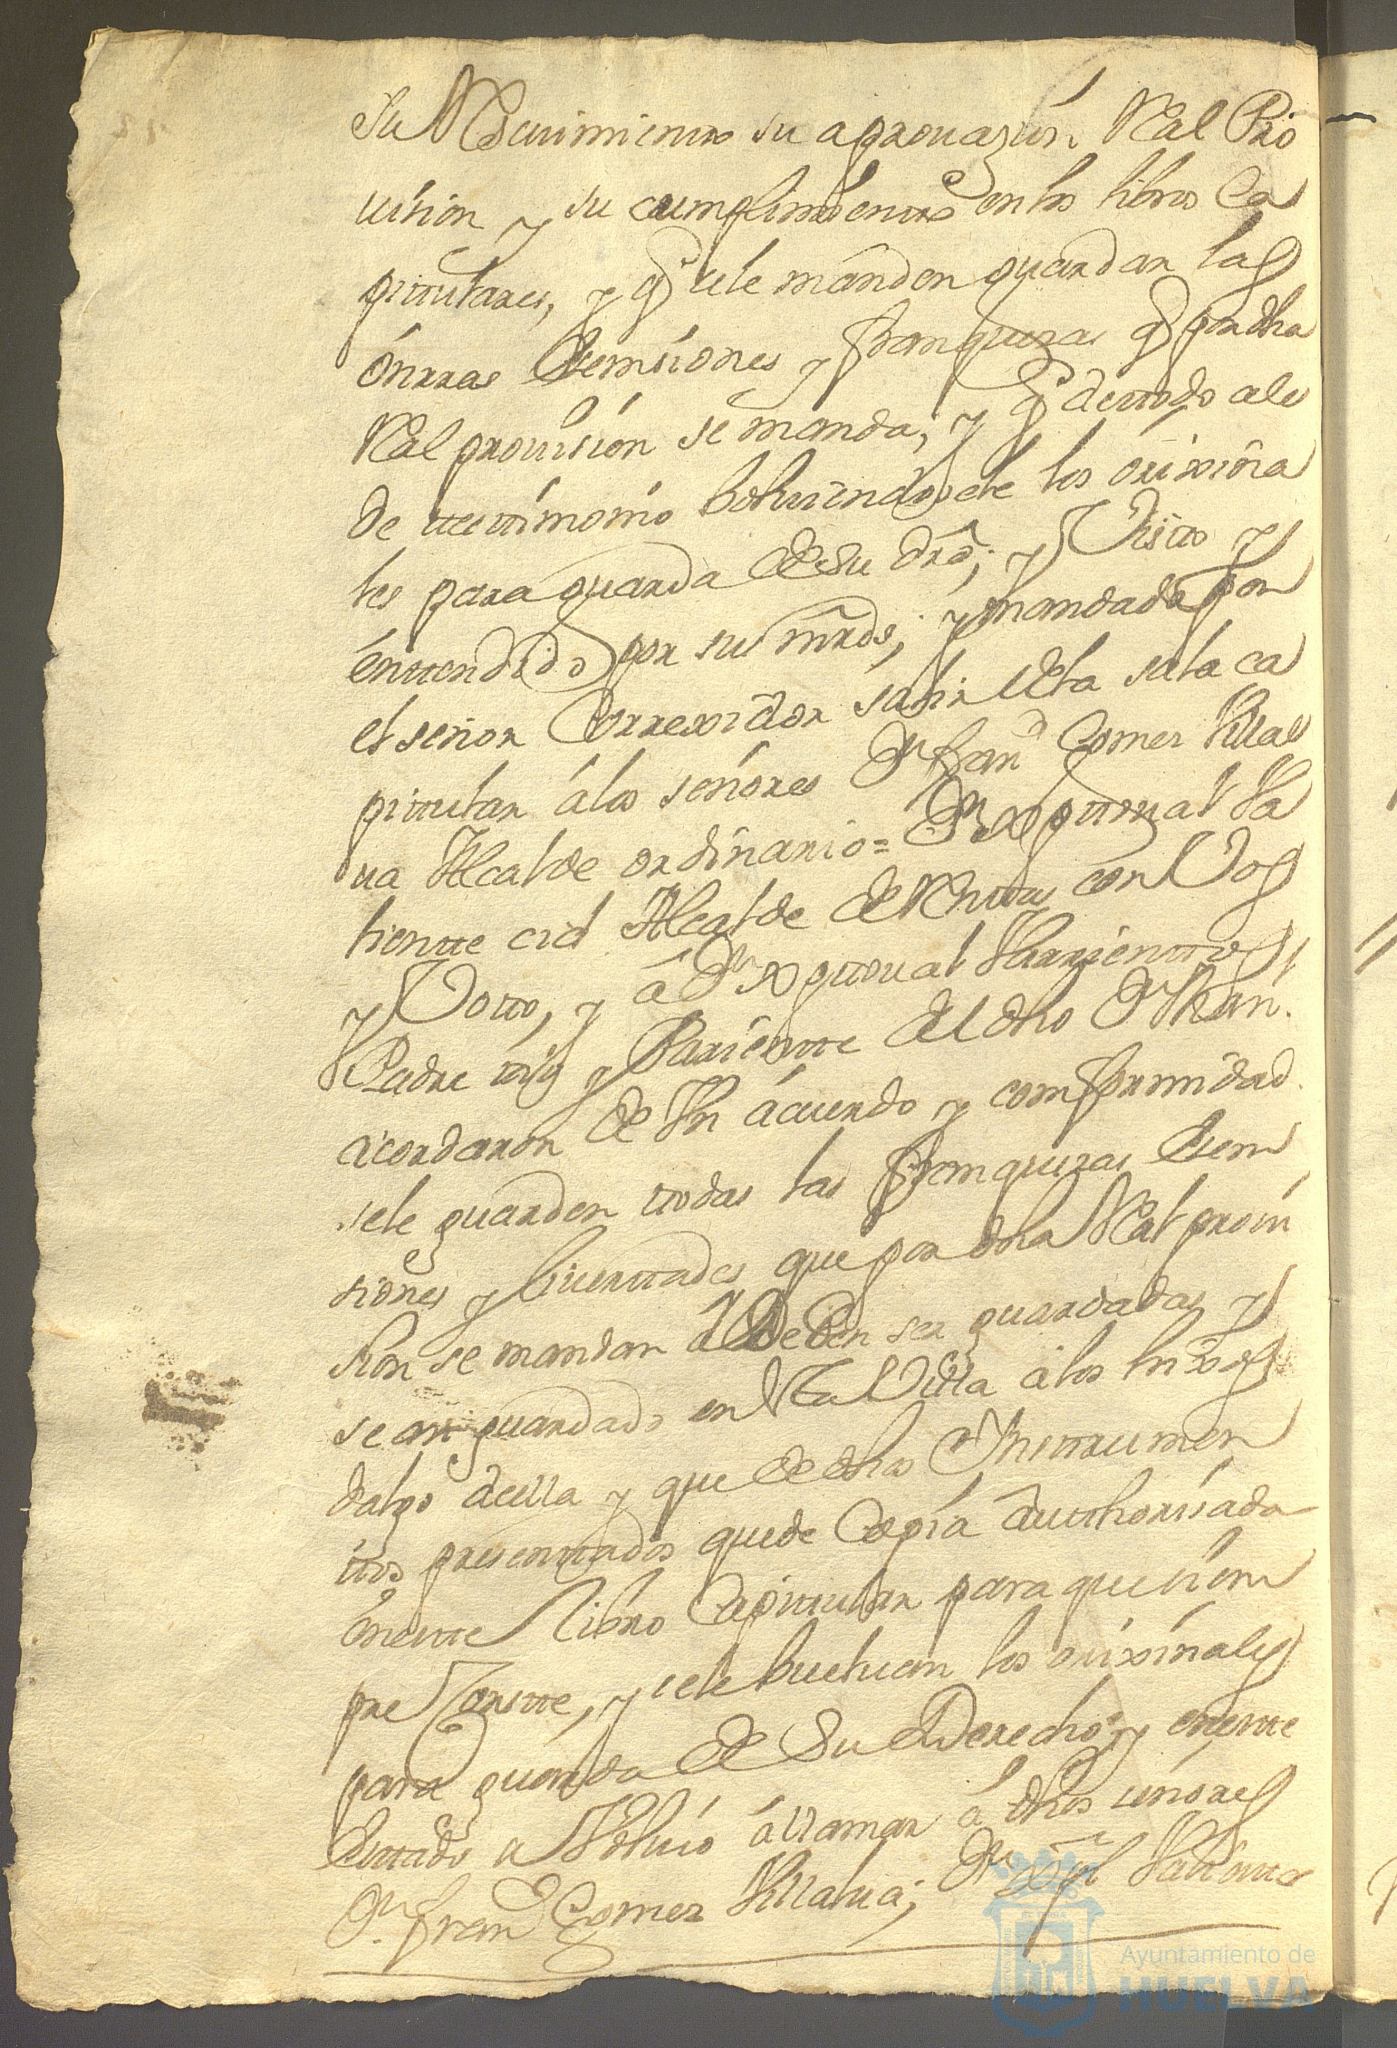 su Resuimiento su aprouazon Real Pro
uision y su cumplimiento en los libros Ca
pitulares, y q sele manden guardar las
onrras Esempsiones y franquezas q por dha
Real prouision se manda; y q de todo ale
de testimonio bolviendosele los orixina
les para guarda de su dro; y Visto y
enttendido por su mrds; y mandado por
el señor Correxidor salir desta sala ca
pitular á los señores Dn Fran Gomez Villal
ua Alcalde ordinario = Dn Xptoual Va
liente cid Alcalde de Rentas con Vos
y Votto, y á Dn Xptoual Barrienttos
Padre y Pariente del dho Dn Fran.
acordaron de Vn ácuerdo y comformidad
sele guarden ttodas las franquezas Esem
siones y liuerttades que por dha Real proui
sion se mandan Deben ser guardadas y
se an guardado en Esta Villa á los hixos
dalgo della y que de dhos Ynsttrumen
ttos presenttados quede Copia Autthorisada
énestte libro Capittular para que siem
pre Constte, y sele buelvan los orixinales
para guarda de Su Derecho; y enestte
Esttado se Voluio államar á dhos senores
Dn Fran Gomez Villalua; Dn Xpl Valientte
Ayuntamiento de
HUELVA